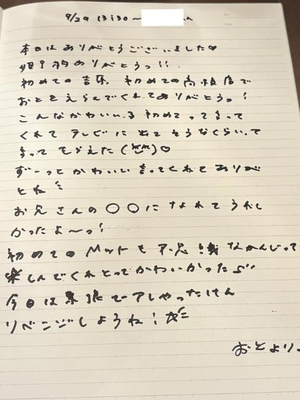 9/29 13:30〜
本日はありがとうございました♡
ありがとうっ!!
初めての 初めての で
おとをえらんでくれてありがとうっ!
こんなかわいい子初めてって言って
くれて テレビに出てそうなくらいって
言ってもらえた ♡
ずーっとかわいい言ってくれてありが
とね
お兄さんの〇〇になれてうれし
かったよ〜っ!
初めてのMットも かんじって
楽しんでくれとってかわいかった
今日は でアレやったけん
リベンジしようね!
おとより。